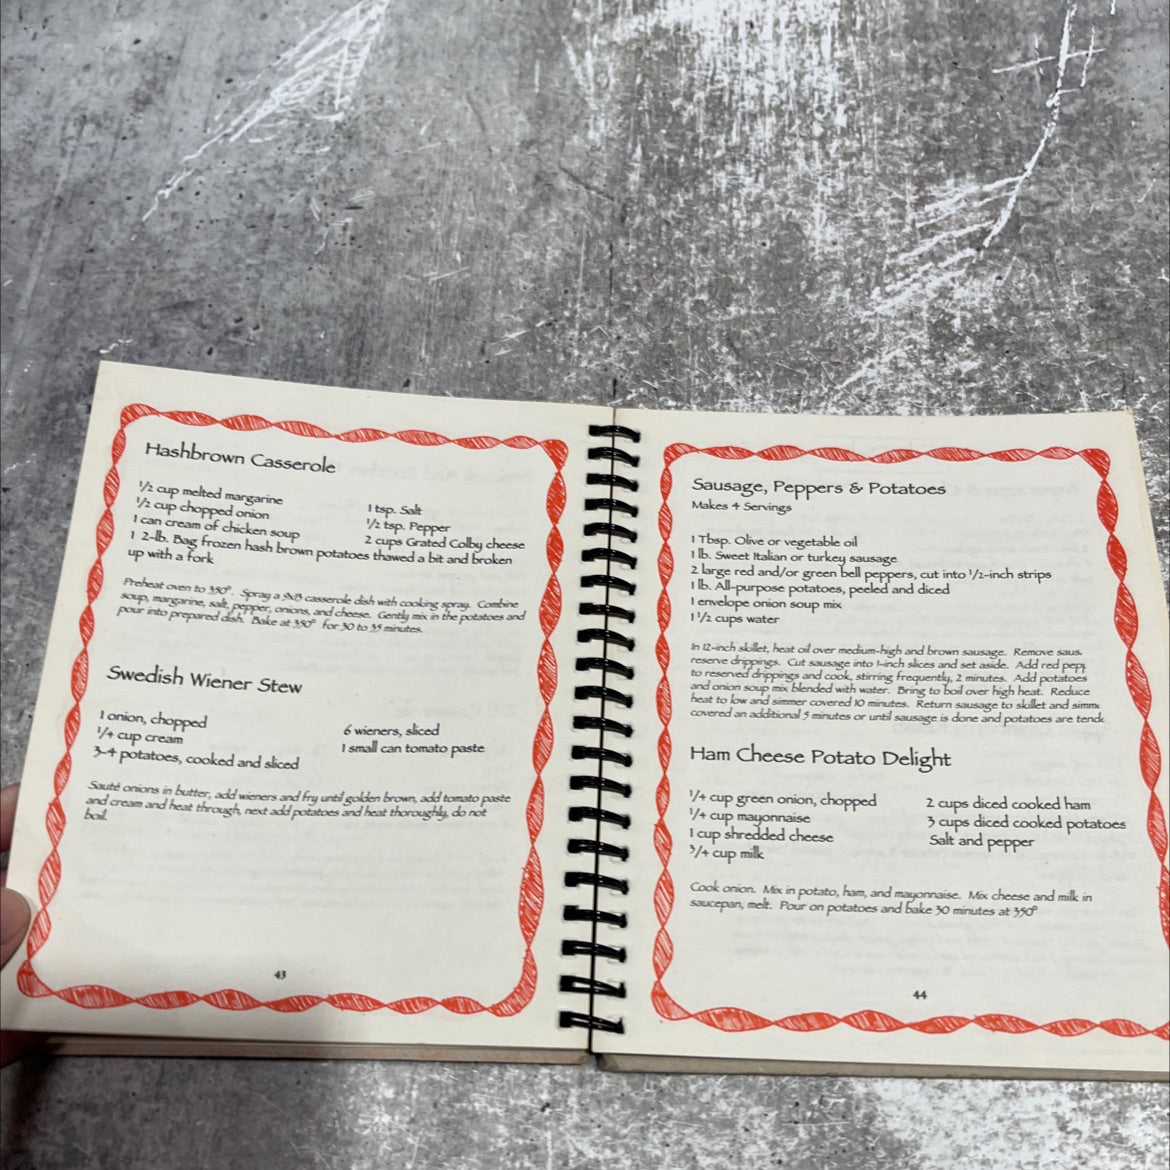 Hashbrown Casserole
1/2 cup melted margarine
1/2 cup chopped onion
1 can cream of chicken soup
1 tsp. Salt
1/2 tsp. Pepper
2 cups Grated Colby cheese
1 2-lb. Bag frozen hash brown potatoes thawed a bit and broken
up with a fork
Preheat oven to 350°. Spray a 9x13 casserole dish with cooking spray. Combine
soup, margarine, salt, pepper, onions, and cheese. Gently mix in the potatoes and
pour into prepared dish. Bake at 350° for 30 to 35 minutes.
Swedish Wiener Stew
1 onion, chopped
1/4 cup cream
3-4 potatoes, cooked and sliced
6 wieners, sliced
1 small can tomato paste
Sauté onions in butter, add wieners and fry until golden brown, add tomato paste
and cream and heat through, next add potatoes and heat thoroughly, do not
boil.
43
Sausage, Peppers & Potatoes
Makes 4 Servings
1 Tbsp. Olive or vegetable oil
1 lb. Sweet Italian or turkey sausage
2 large red and/or green bell peppers, cut into 1/2-inch strips
1 lb. All-purpose potatoes, peeled and diced
1 envelope onion soup mix
1 1/2 cups water
In 12-inch skillet, heat oil over medium-high and brown sausage. Remove saus
reserve drippings. Cut sausage into 1-inch slices and set aside. Add red pepp
to reserved drippings and cook, stirring frequently, 2 minutes. Add potatoes
and onion soup mix blended with water. Bring to boil over high heat. Reduce
heat to low and simmer covered 10 minutes. Return sausage to skillet and simm
covered an additional 5 minutes or until sausage is done and potatoes are tende
Ham Cheese Potato Delight
1/4 cup green onion, chopped
1/4 cup mayonnaise
1 cup shredded cheese
3/4 cup milk
2 cups diced cooked ham
3 cups diced cooked potatoes
Salt and pepper
Cook onion. Mix in potato, ham, and mayonnaise. Mix cheese and milk in
saucepan, melt. Pour on potatoes and bake 30 minutes at 350°
44